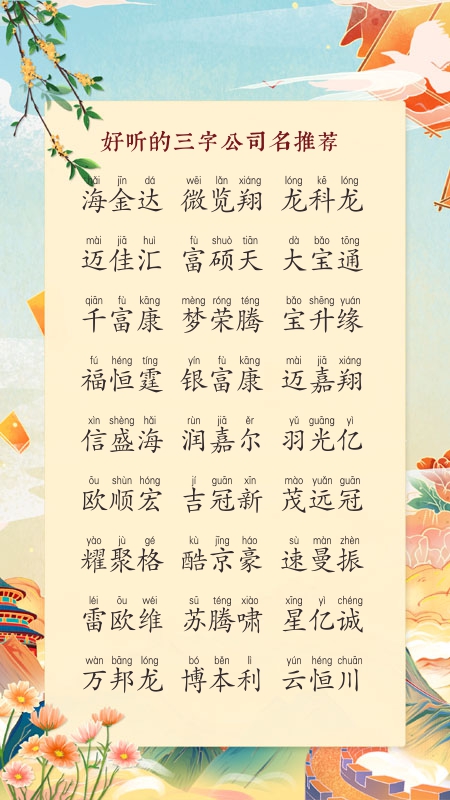 好听的三字公司名推荐
hǎi jīn dá wēi lǎn xiáng lóng kē lóng
海金达 微览翔 龙科龙
mài jiā huì fù shuò tiān dà bǎo tōng
迈佳汇 富硕天 大宝通
qiān fù kāng mèng róng téng bǎo shēng yuán
千富康 梦荣腾 宝升缘
fú héng tíng yín fù kāng mài jiā xiáng
福恒霆 银富康 迈嘉翔
xìn shèng hǎi rùn jiā ěr yǔ guāng yì
信盛海 润嘉尔 羽光亿
ōu shùn hóng jí guān xīn mào yuǎn guān
欧顺宏 吉冠新 茂远冠
yào jù gé kù jīng háo sù màn zhèn
耀聚格 酷京豪 速曼振
léi ōu wéi sū téng xiào xīng yì chéng
雷欧维 苏腾啸 星亿诚
wàn bāng lóng bó běn lì yún héng chuān
万邦龙 博本利 云恒川